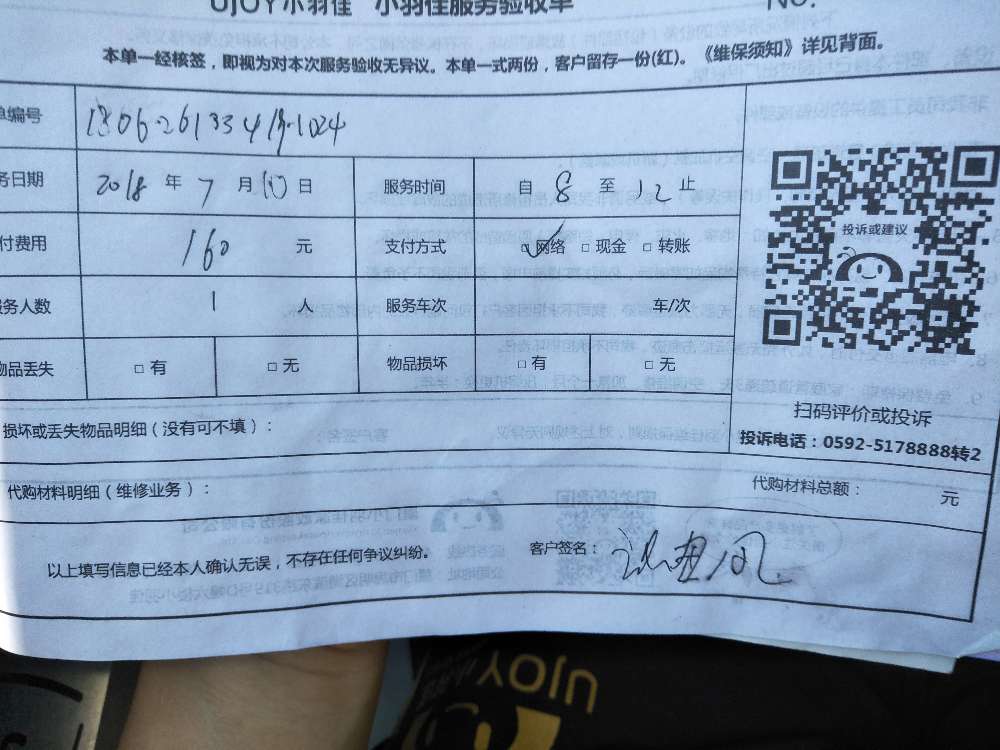 UJOY小羽佳 小羽佳服务验收单 NO.
本单一经核签，即视为对本次服务验收无异议。本单一式两份，客户留存一份(红)。《维保须知》详见背面。
单编号
务日期 2018 年 7 月 日 服务时间 自 8 至 12 止
付费用 160 元 支付方式 □网络 □现金 □转账
服务人数 1 人 服务车次 车/次
物品丢失 □ 有 □ 无 物品损坏 □ 有 □ 无
投诉或建议
扫码评价或投诉
投诉电话：0592-5178888转2
损坏或丢失物品明细（没有可不填）：
代购材料明细（维修业务）： 代购材料总额： 元
以上填写信息已经本人确认无误，不存在任何争议纠纷。 客户签名：
UJOY